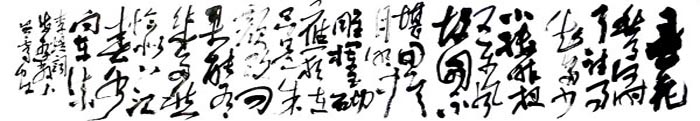 春花
秋月何时
了往事
知多少
小楼昨夜
又东风
故国不
堪回首
月明中
雕栏玉砌
应犹在
只是朱
颜改问
君能有
几多愁
恰似一江
春水
向东流
李煜词